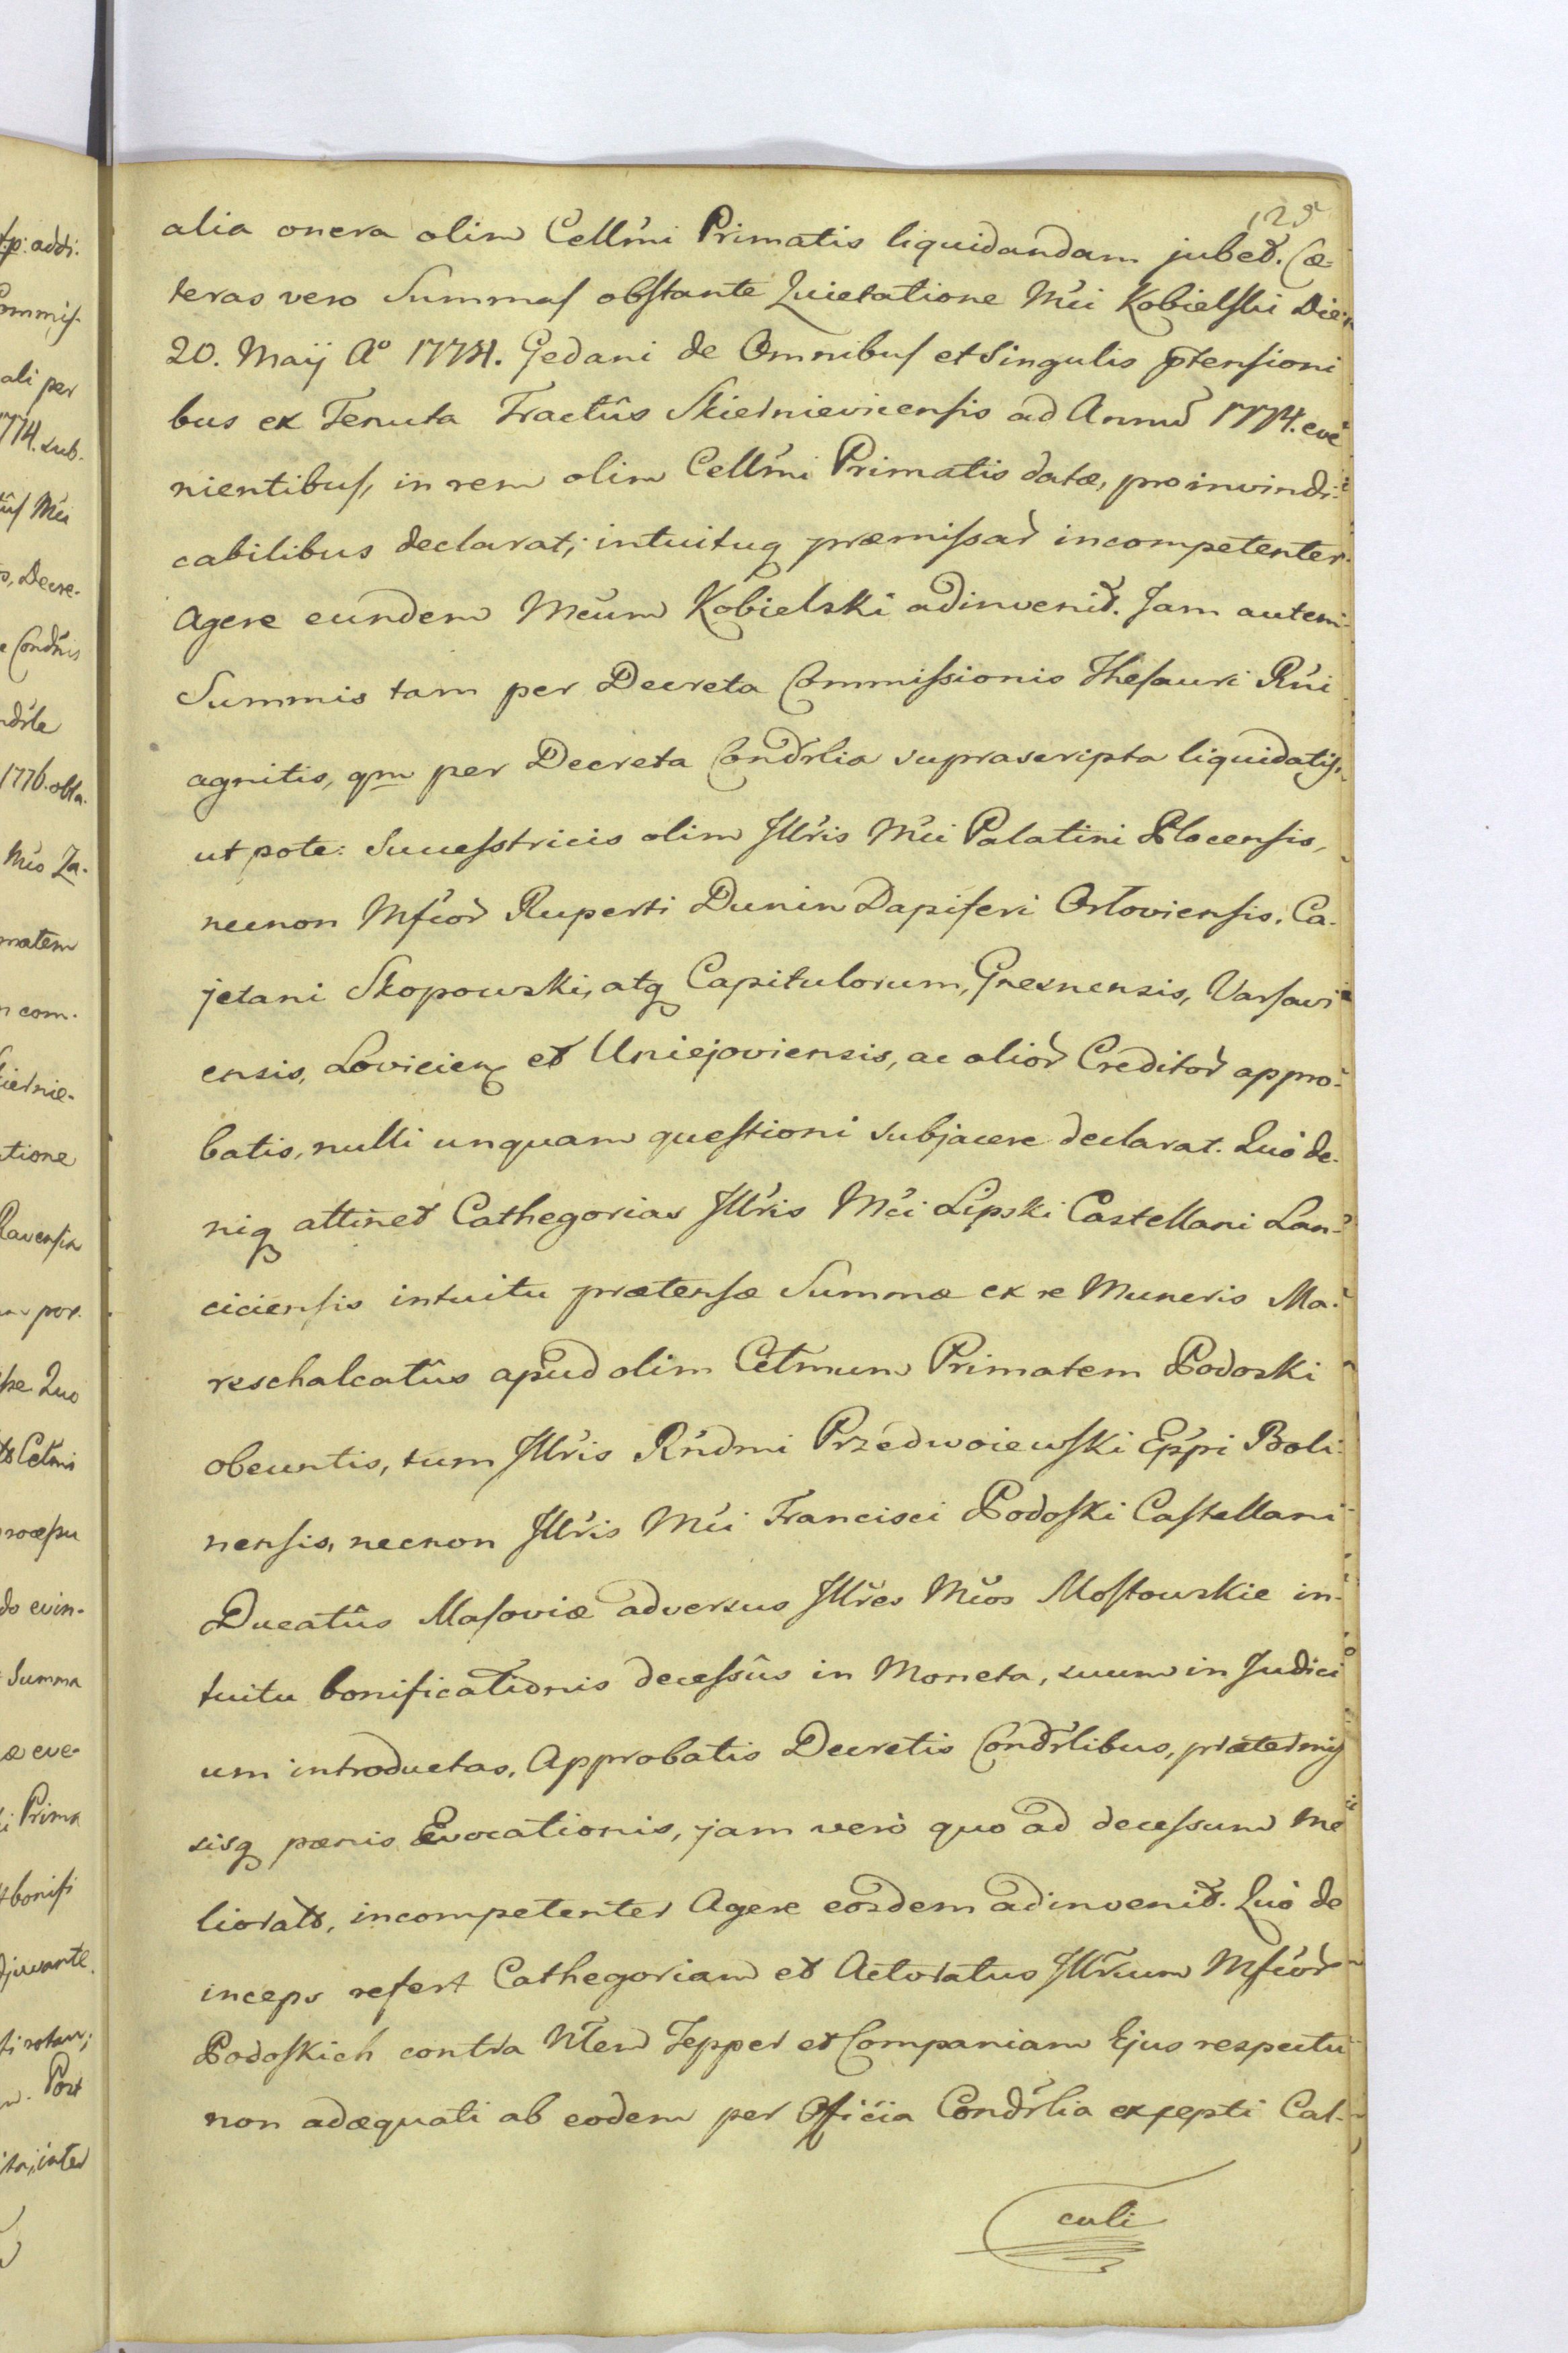 125
alia onera olim Cellmi Primatis liquidandam jubet. Cæ-
teras vero Summas obstante Quietatione Mci Kobielski Die
20. Maij Aº 1774. Gedani de Omnibus et Singulis ptensioni
bus ex Tenuta Tractûs Skiernievicensis ad Annum 1774. eve
nientibus, in rem olim Cellmi Primatis datæ, pro invindi-
cabilibus declarat; intuituq præmissar incompetenter
Agere eundem Mcum Kobielski adinvenit. Jam autem
Summis tam per Decreta Commissionis Thesauri Rni
agnitis, qm per Decreta Condrlia suprascripta liquidatis,
ut pote: Successtricis olim Illris Mci Palatini Plocensis,
necnon Mficor Ruperti Dunin Dapiferi Orloviensis, Ca-
jetani Skopowski, atq Capitulorum, Gnesnensis, Varsavi
ensis, Lovicien et Uniejoviensis, ac alior Creditor appro-
batis, nulli unquam questioni subjacere declarat. Quò de-
niq attinet Cathegorias Illris Mci Lipski Castellani Lan-
ciciensis intuitu prætensæ Summæ ex re Muneris Ma-
reschalcatûs apud olim Celmum Primatem Podoski
obeuntis, tum Illris Rndmi Przedwoiewski Eppi Boli-
nensis, necnon Illris Mci Francisci Podoski Castellani
Ducatûs Masoviæ adversus Illres Mcos Mostowskie in-
tuitu bonificationis decessûs in Moneta, suum in Judici
um introductas, Approbatis Decretis Condrlibus, prætermis
sisq pænis Evocationis, jam verò quo ad decessum me
liorats, incompetenter Agere eosdem adinvenit. Quò de
inceps refert Cathegoriam et Actoratus Illrium Mficor
Podoskich contra Nlem Tepper et Companiam Ejus respectu
non adæquati ab eodem per Officia Condrlia excepti Cal-
culi